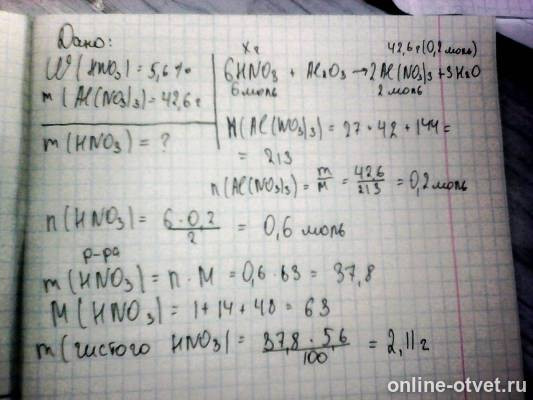 Дано:
W(HNO3) = 5,6%
m(Al(NO3)3) = 42,6г
m(HNO3) = ?
Xг 42,6г(0,2 моль)
6HNO3 + Al2O3 → 2Al(NO3)3 + 3H2O
6моль 2моль
M(Al(NO3)3) = 27 + 42 + 144 =
= 213
n(Al(NO3)3) = m/M = 42,6/213 = 0,2 моль
n(HNO3) = 6·0,2/2 = 0,6 моль
р-ра
m(HNO3) = n·M = 0,6·63 = 37,8
M(HNO3) = 1+14+48 = 63
m(чистого HNO3) = 37,8·5,6/100 = 2,11г
online-otvet.ru